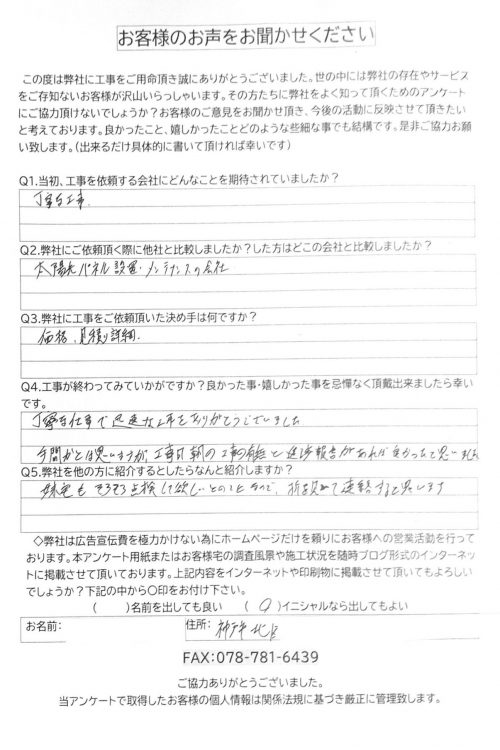 お客様のお声をお聞かせください
この度は弊社に工事をご用命頂き誠にありがとうございました。世の中には弊社の存在やサービス
をご存知ないお客様が沢山いらっしゃいます。その方たちに弊社をよく知って頂くためのアンケート
にご協力頂けないでしょうか？お客様のご意見をお聞かせ頂き、今後の活動に反映させて頂きたい
と考えております。良かったこと、嬉しかったことどのような些細な事でも結構です。是非ご協力お願
い致します。（出来るだけ具体的に書いて頂ければ幸いです）
Q1.当初、工事を依頼する会社にどんなことを期待されていましたか？
丁寧な工事.
Q2.弊社にご依頼頂く際に他社と比較しましたか？した方はどこの会社と比較しましたか？
太陽光パネル設置・メンテナンスの会社
Q3.弊社に工事をご依頼頂いた決め手は何ですか？
価格、見積り詳細.
Q4.工事が終わってみていかがですか？良かった事・嬉しかった事を忌憚なく頂戴出来ましたら幸い
です。
丁寧な仕事で迅速な工事をありがとうございました
手間かとは思いますが、工事期間の工事の進捗報告があれば良かったと思いました
Q5.弊社を他の方に紹介するとしたらなんと紹介しますか？
もそろそろ点検して欲しいとのことなので、折を改めて連絡すると思います
◇弊社は広告宣伝費を極力かけない為にホームページだけを頼りにお客様への営業活動を行って
おります。本アンケート用紙またはお客様宅の調査風景や施工状況を随時ブログ形式のインターネッ
トに掲載させて頂いております。上記内容をインターネットや印刷物に掲載させて頂いてもよろしい
でしょうか？下記の中から〇印をお付け下さい。
(　　)名前を出しても良い　(〇)イニシャルなら出してもよい
お名前:　住所: 神戸市北区
FAX:078-781-6439
ご協力ありがとうございました。
当アンケートで取得したお客様の個人情報は関係法規に基づき厳正に管理致します。